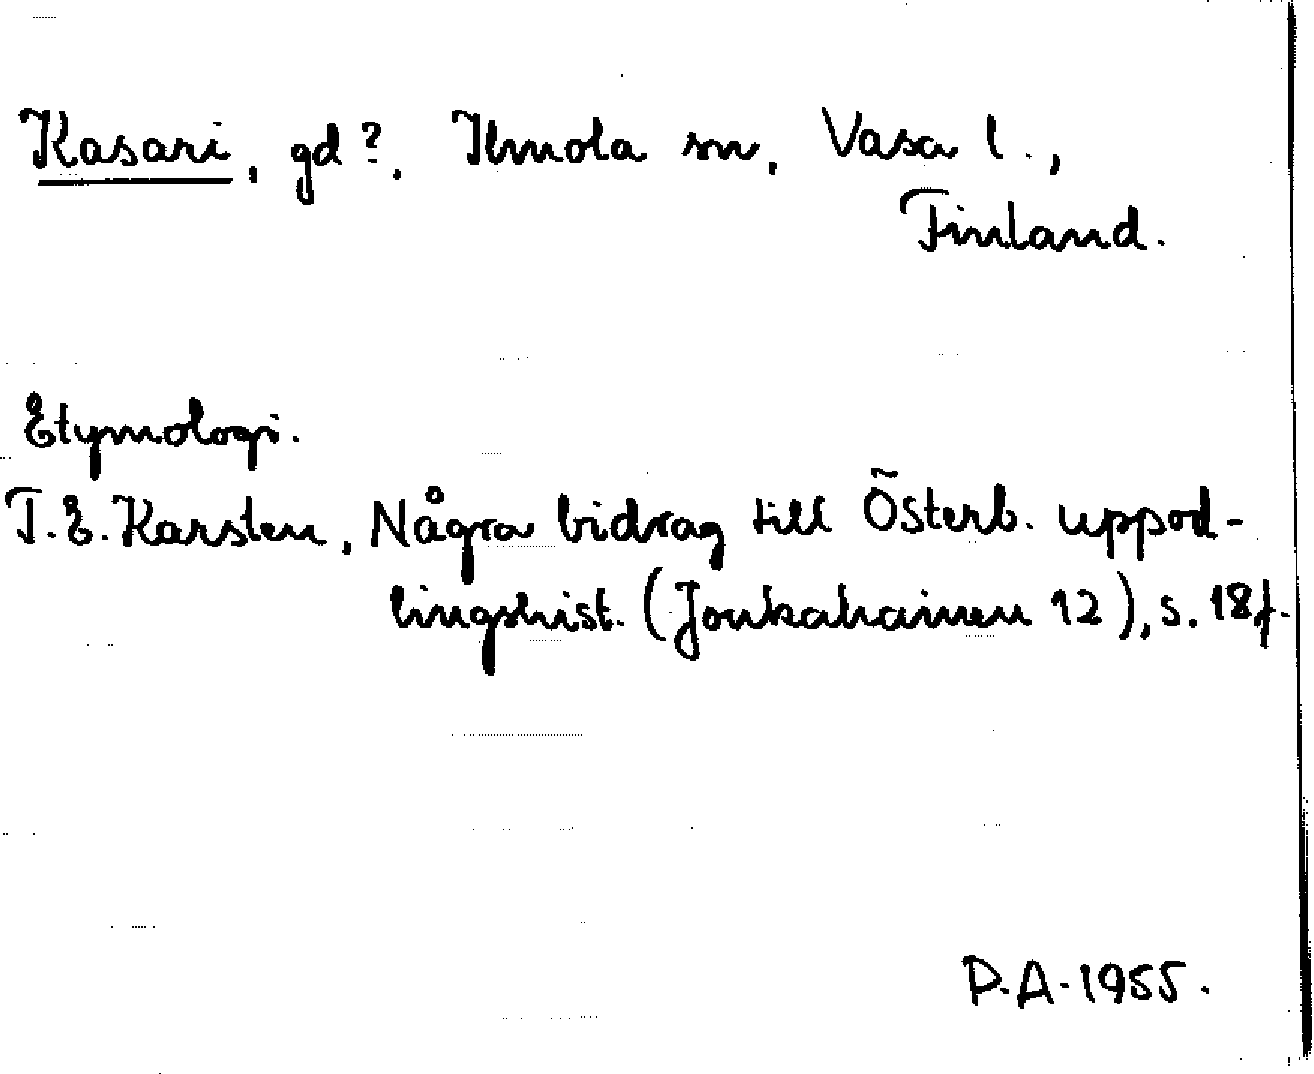 Kasari, gd?. Ilmola sn, Vasa l.,
Finland.
Etymologi.
T.E. Karsten, Några bidrag till Österb. uppod-
lingshist. (Joukahainen 12), s. 18f.
P.A. 1955.